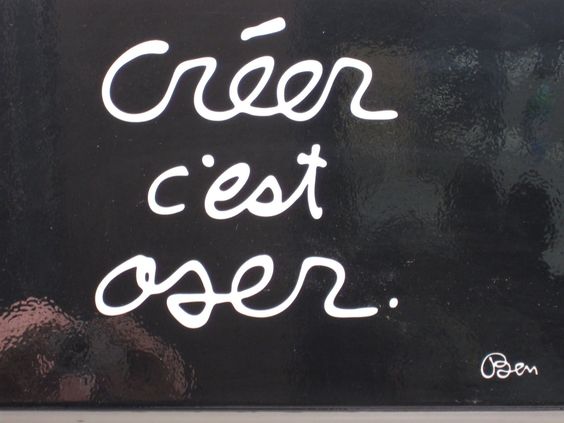 Créer
c'est
oser.
Ben